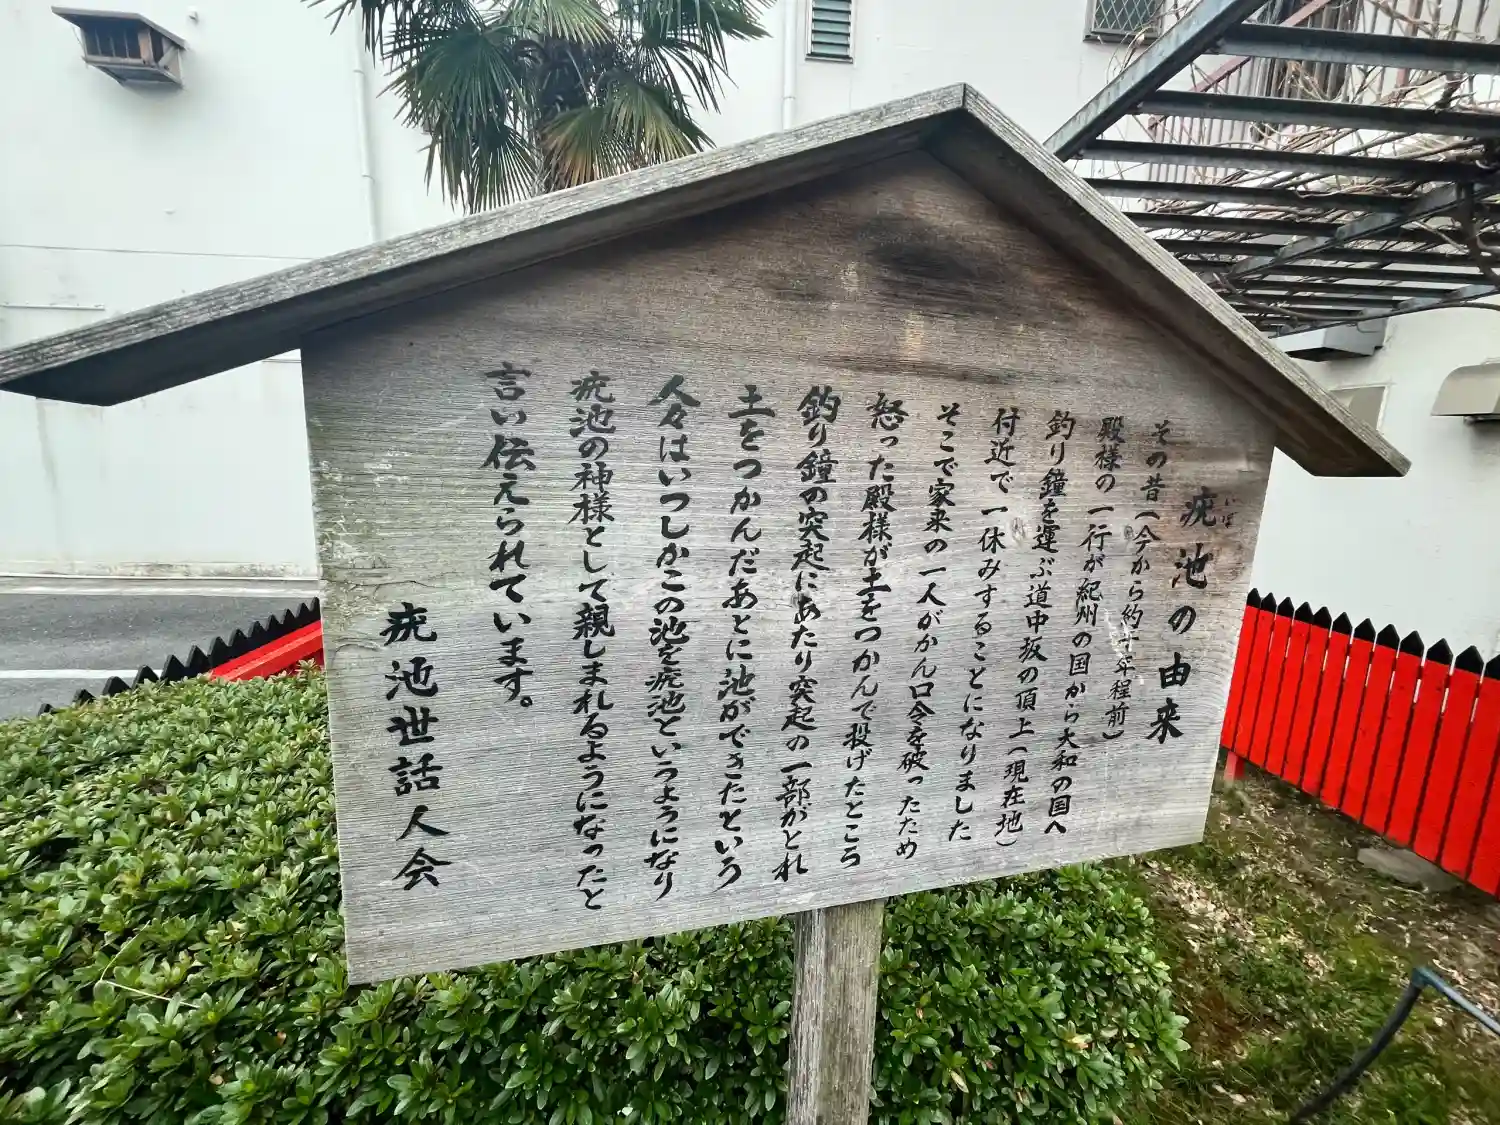 疣池の由来
いぼ
その昔(今から約千年程前)
殿様の一行が紀州の国から大和の国へ
釣り鐘を運ぶ道中坂の頂上(現在地)
付近で一休みすることになりました
そこで家来の一人がかん口令を破ったため
怒った殿様が土をつかんで投げたところ
釣り鐘の突起にあたり突起の一部がとれ
土をつかんだあとに池ができたという
人々はいつしかこの池を疣池というようになり
疣池の神様として親しまれるようになったと
言い伝えられています。
疣池世話人会